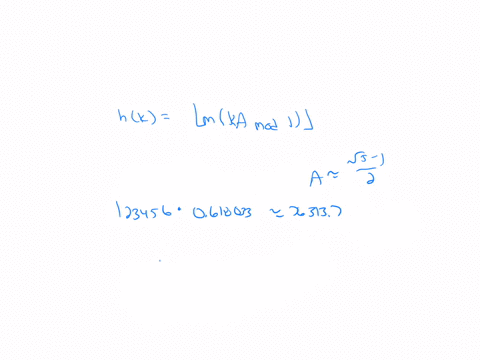 h(k) = ⌊m(kA mod 1)⌋
A ≈ (√5 - 1)/2
123456 · 0.618033 ≈ 76313.7